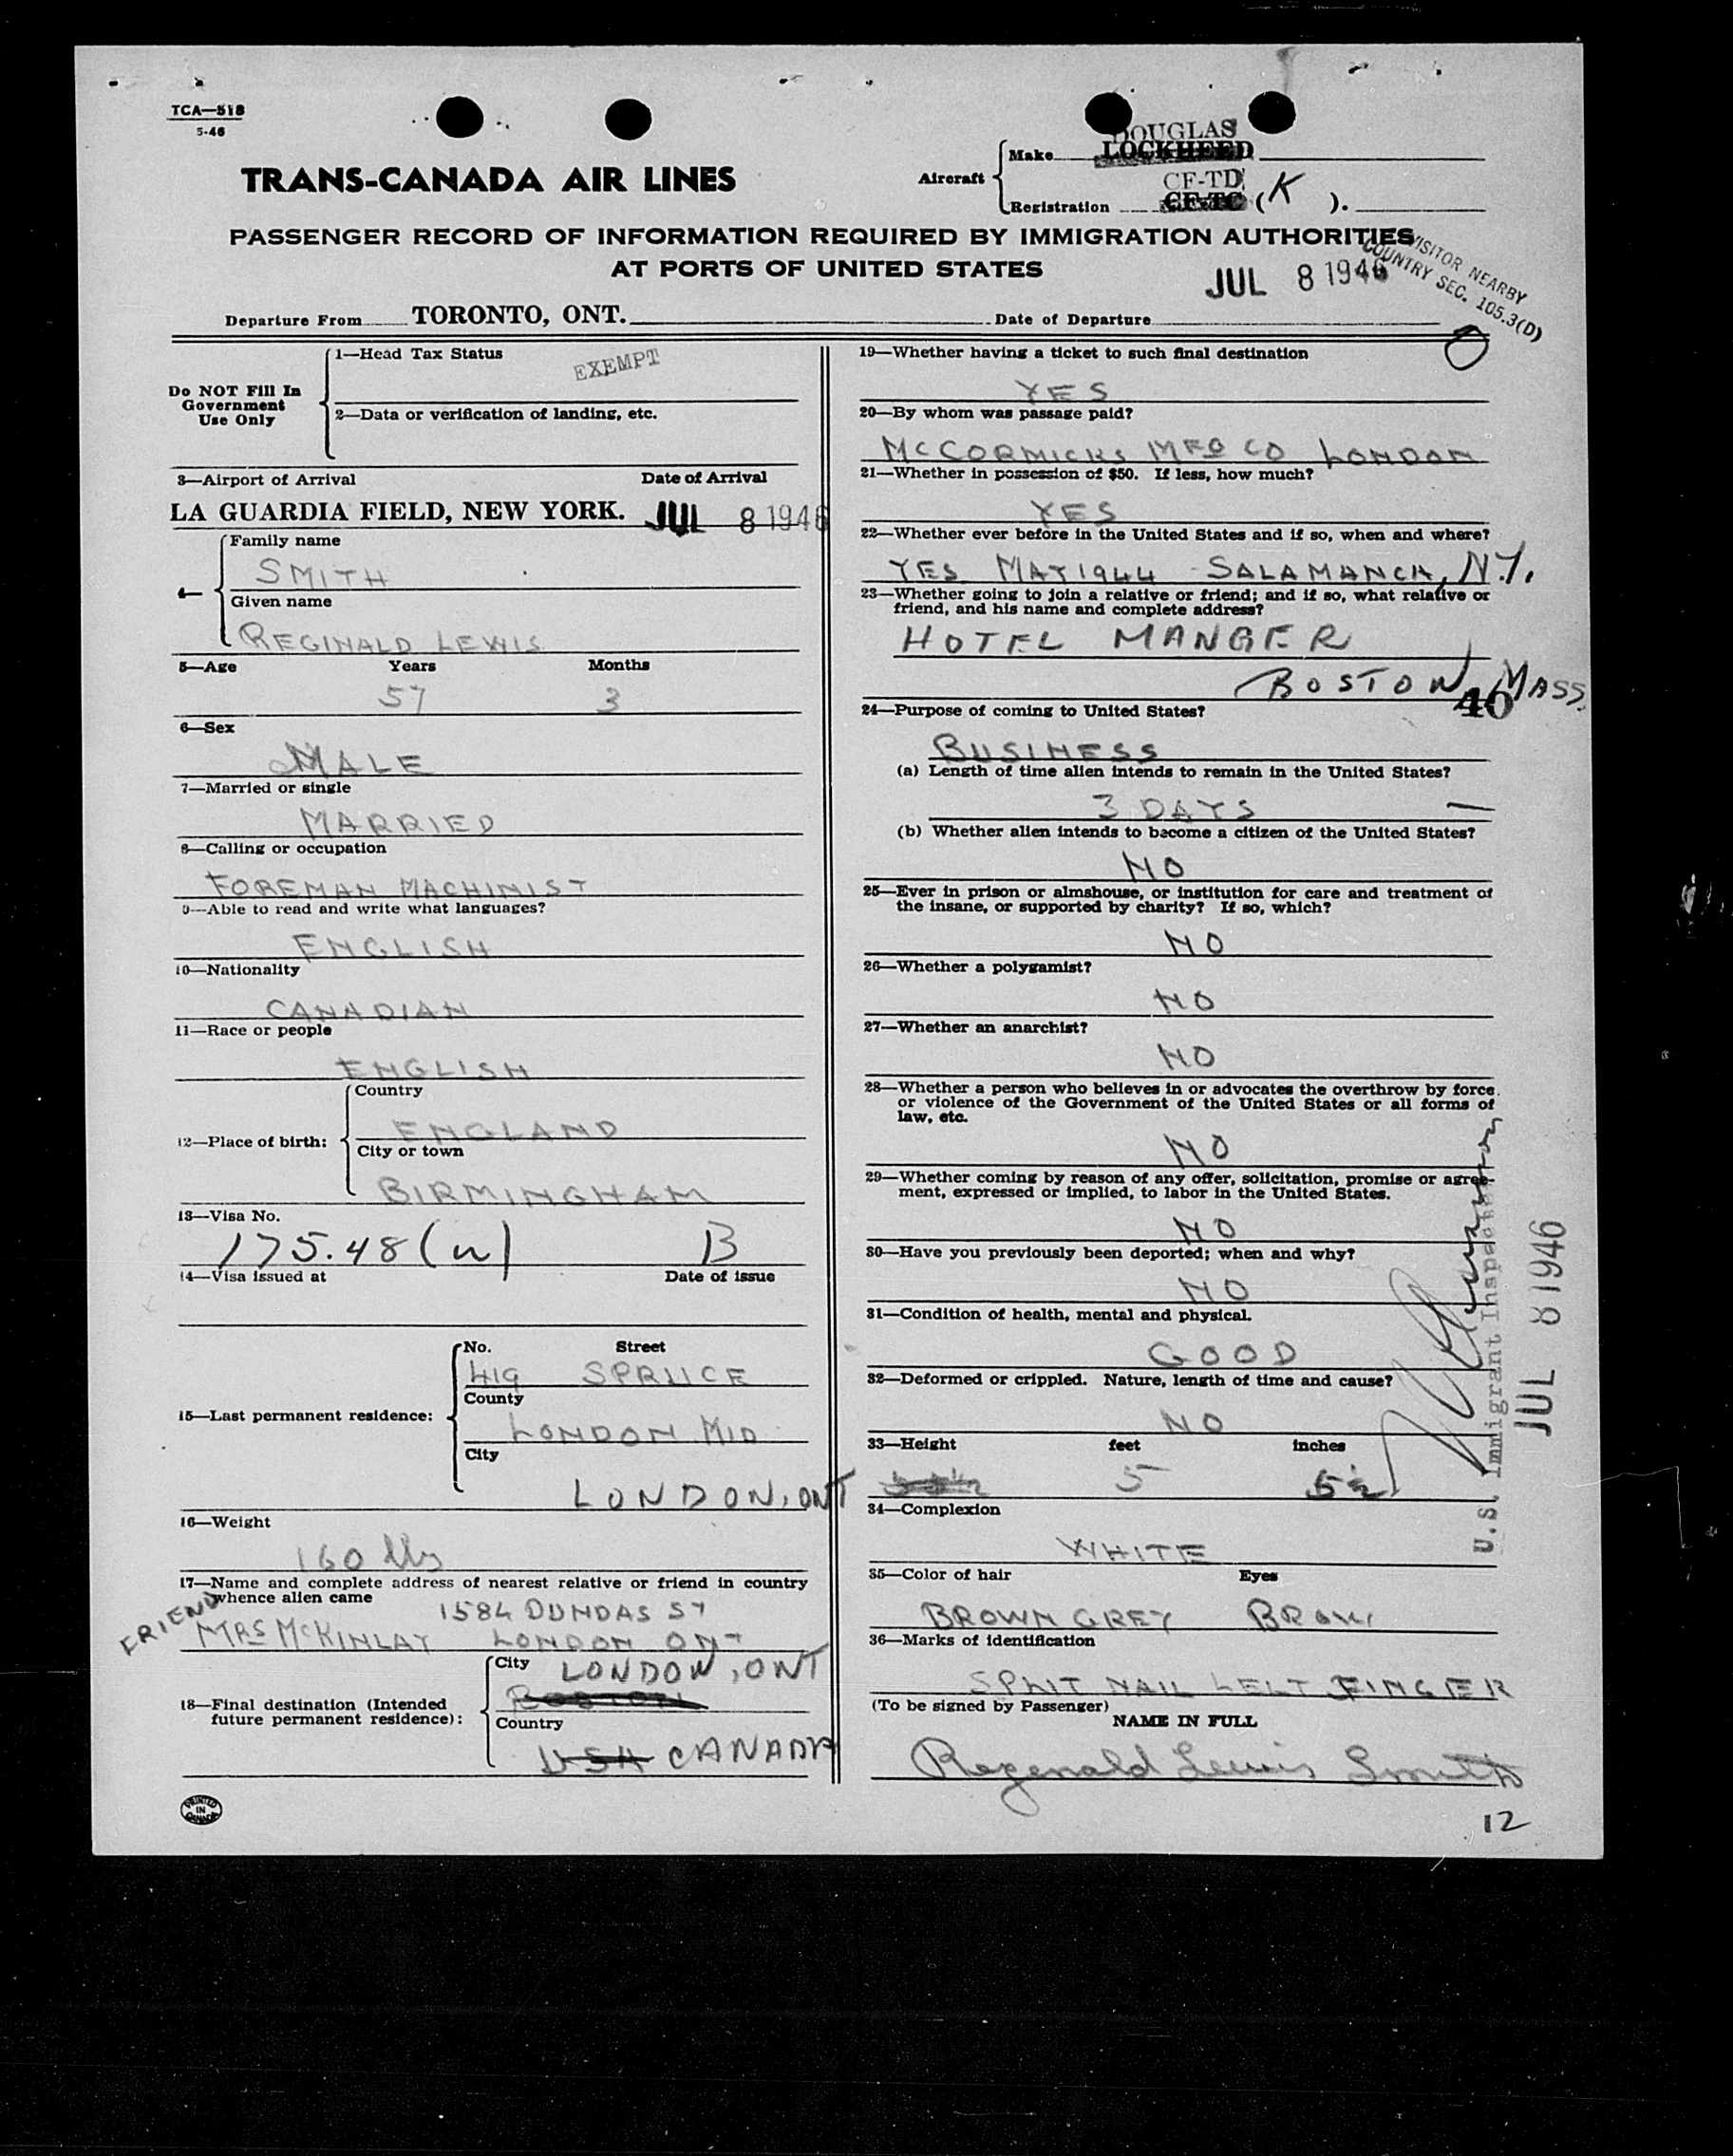 TCA—518
5-46
TRANS-CANADA AIR LINES
Aircraft
Make
DOUGLAS
LOCKHEED
CF-TD
Registration CF-TC (K).
PASSENGER RECORD OF INFORMATION REQUIRED BY IMMIGRATION AUTHORITIES
AT PORTS OF UNITED STATES
JUL 8 1946
VISITOR NEARBY
COUNTRY SEC. 105.3(D)
Departure From TORONTO, ONT. Date of Departure
Do NOT Fill In
Government
Use Only
1—Head Tax Status
EXEMPT
2—Data or verification of landing, etc.
3—Airport of Arrival Date of Arrival
LA GUARDIA FIELD, NEW YORK. JUL 8 1946
4—
Family name
SMITH
Given name
REGINALD LEWIS
5—Age Years Months
57 3
6—Sex
MALE
7—Married or single
MARRIED
8—Calling or occupation
FOREMAN MACHINIST
9—Able to read and write what languages?
ENGLISH
10—Nationality
CANADIAN
11—Race or people
ENGLISH
12—Place of birth:
Country
ENGLAND
City or town
BIRMINGHAM
13—Visa No.
175.48 (w) B
14—Visa issued at Date of issue
15—Last permanent residence:
No. Street
419 SPRUCE
County
LONDON MID
City
LONDON, ONT
16—Weight
160 lbs
17—Name and complete address of nearest relative or friend in country
whence alien came
FRIEND
1584 DUNDAS ST
MRS McKINLAY LONDON ONT
18—Final destination (Intended
future permanent residence):
City
LONDON, ONT
BOSTON
Country
USA CANADA
PRINTED
IN
CANADA
19—Whether having a ticket to such final destination
YES
20—By whom was passage paid?
McCORMICKS MFG CO LONDON
21—Whether in possession of $50. If less, how much?
YES
22—Whether ever before in the United States and if so, when and where?
YES MAY 1944 SALAMANCA, N.Y.
23—Whether going to join a relative or friend; and if so, what relative or
friend, and his name and complete address?
HOTEL MANGER
BOSTON, MASS.
40
24—Purpose of coming to United States?
BUSINESS
(a) Length of time alien intends to remain in the United States?
3 DAYS
(b) Whether alien intends to become a citizen of the United States?
NO
25—Ever in prison or almshouse, or institution for care and treatment of
the insane, or supported by charity? If so, which?
NO
26—Whether a polygamist?
NO
27—Whether an anarchist?
NO
28—Whether a person who believes in or advocates the overthrow by force
or violence of the Government of the United States or all forms of
law, etc.
NO
29—Whether coming by reason of any offer, solicitation, promise or agree-
ment, expressed or implied, to labor in the United States.
NO
30—Have you previously been deported; when and why?
NO
31—Condition of health, mental and physical.
GOOD
32—Deformed or crippled. Nature, length of time and cause?
NO
33—Height feet inches
5 5½
34—Complexion
WHITE
35—Color of hair Eyes
BROWN GREY BROWN
36—Marks of identification
SPLIT NAIL LEFT FINGER
(To be signed by Passenger)
NAME IN FULL
Reginald Lewis Smith
12
U.S. Immigrant Inspector
JUL 8 1946